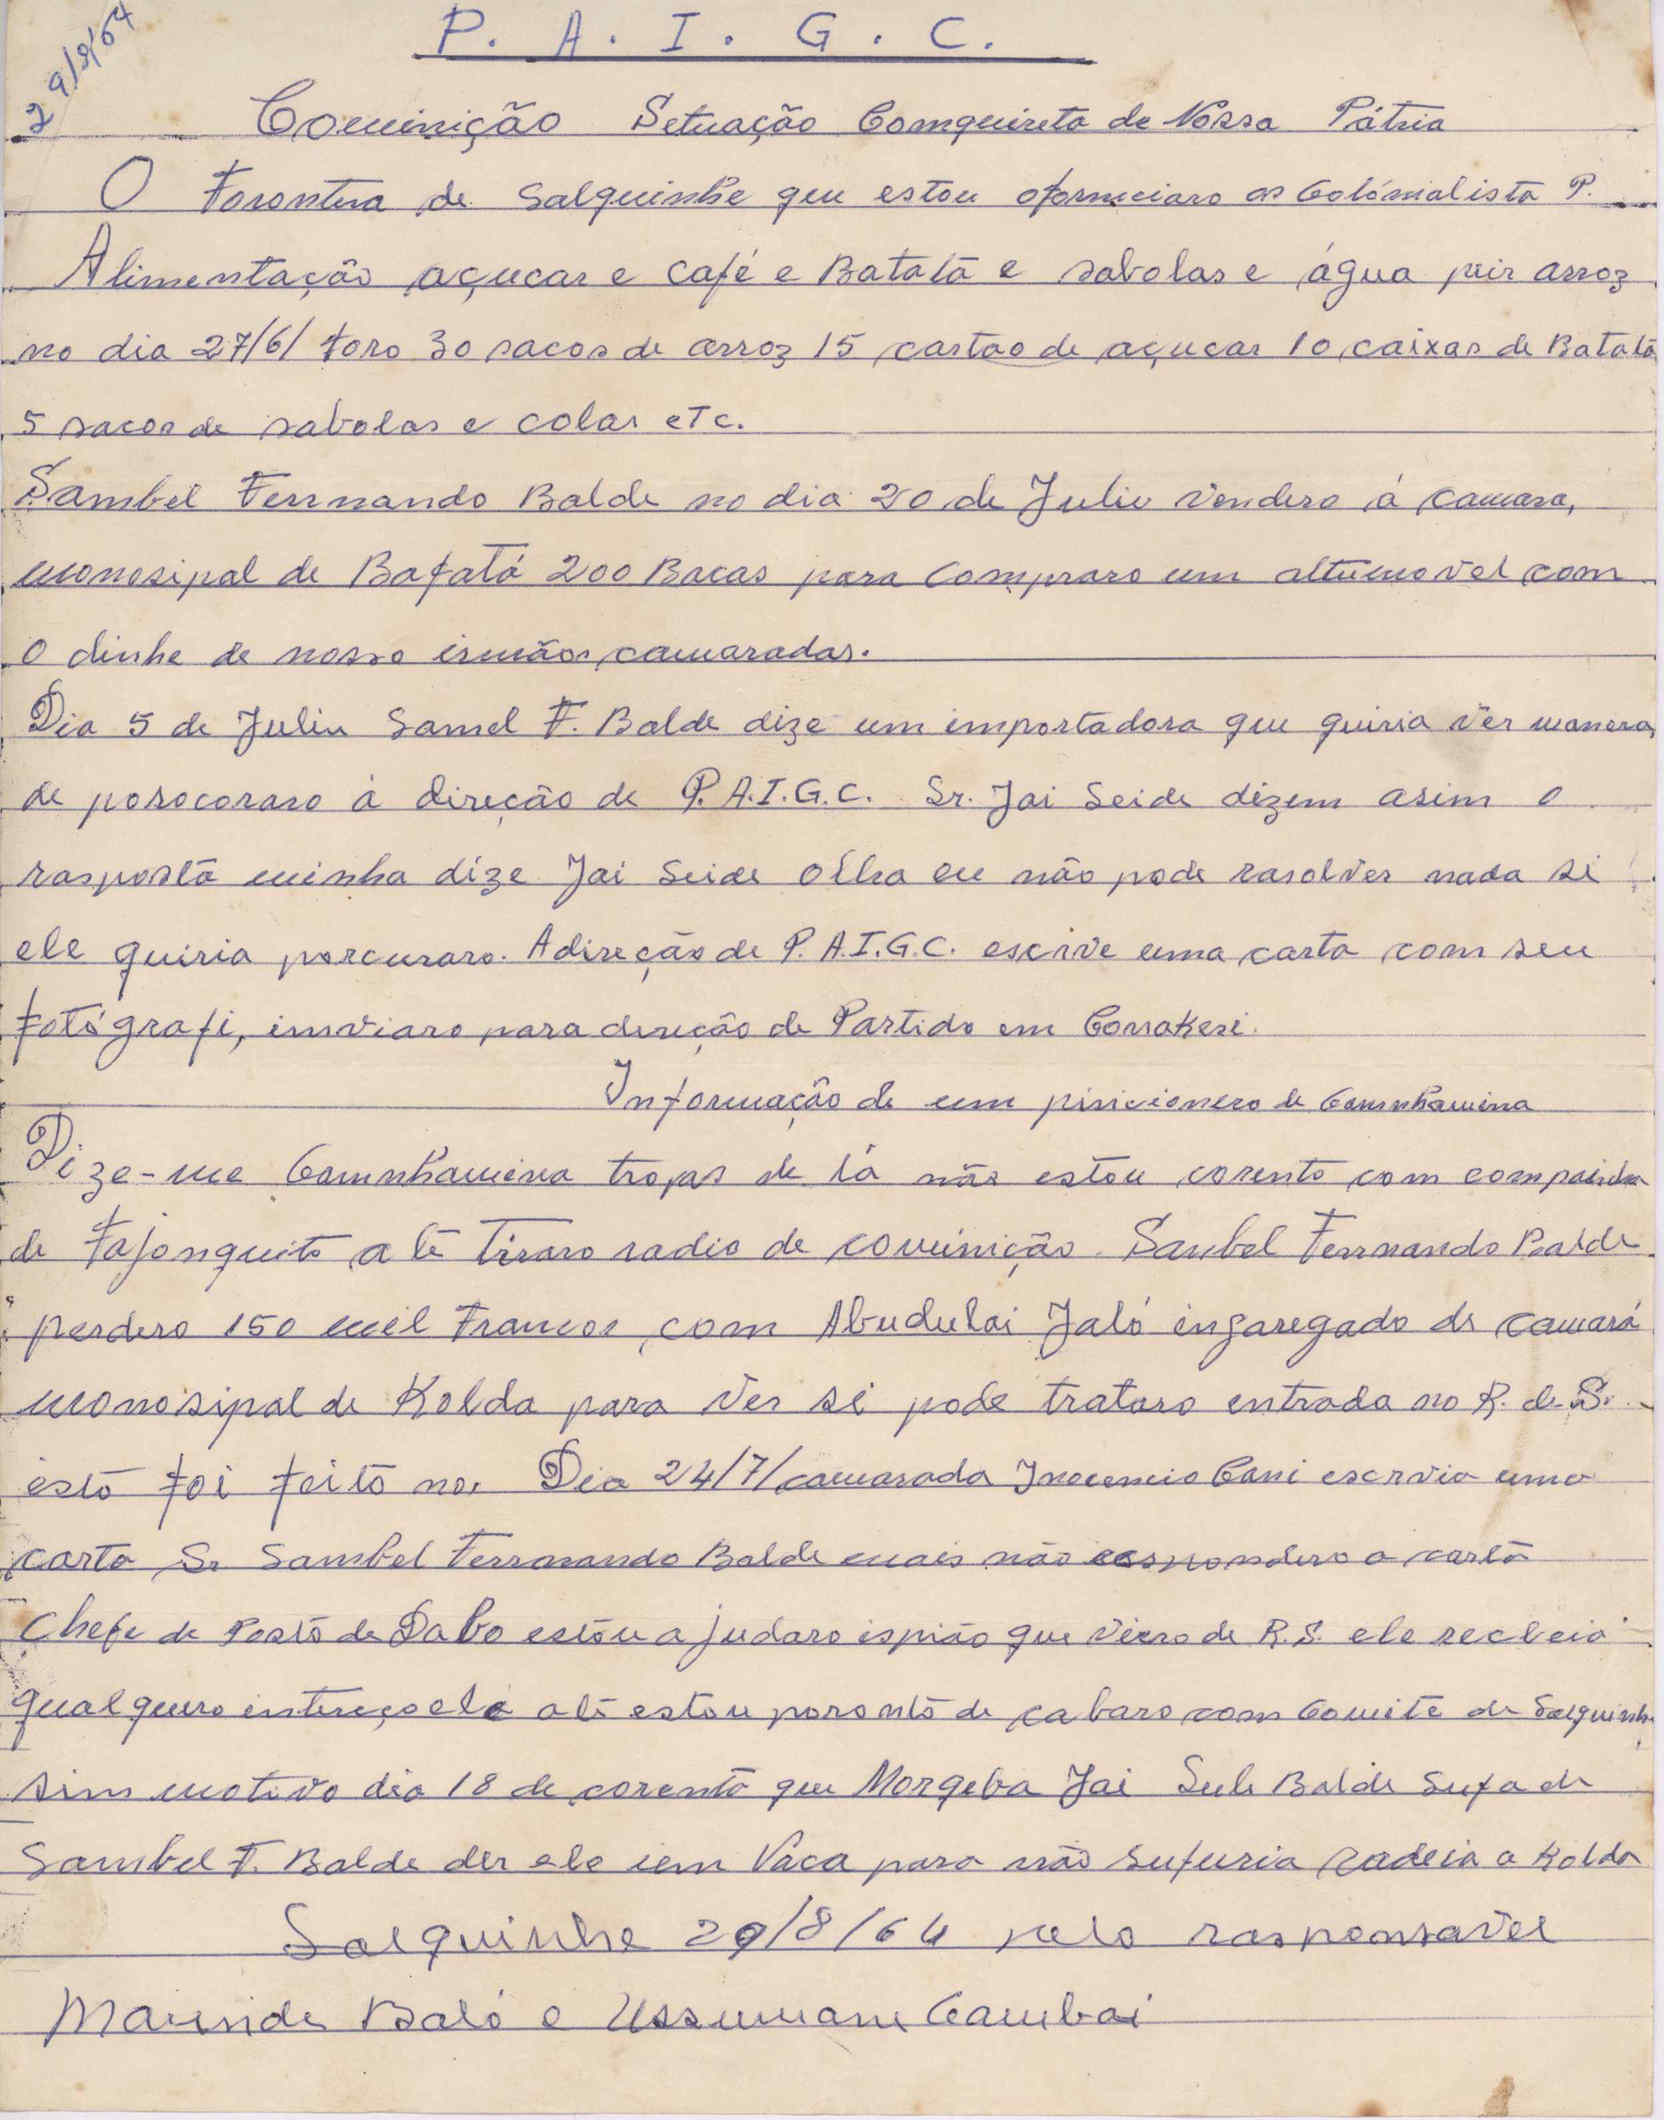 29/8/64
P. A. I. G. C.
Comunição Setuação Comquireta de Nossa Pátria
O Forontera de Salquinhe que estou oforneciaro os Colónialista P.
Alimentação açucar e café e Batatã e sabolas e água por arroz
no dia 27/6/ foro 30 sacos de arroz 15 cartão de açucar 10 caixas de Batatã
5 sacos de sabolas e colas etc.
Sambel Fernnando Balde no dia 20 de Julio Vendero á camara,
monosipal de Bafatá 200 Bacas para Compraro um altumovel com
o dinhe de nosso irmãos camaradas.
Dia 5 de Juliu Samel F. Balde dize um importadora que quiria ver manera,
de porocoraro á direção de P.A.I.G.C. Sr. Jai Seide dizem asim o
raspostã minha dize Jai Seide olha eu não pode rasolver nada si
ele quiria porcuraro. A direção de P.A.I.G.C. escrive uma carta com seu
fotógrafi, inviaro para direção de Partido em Conakeri.
Informação de um pisicionero de Camnhamina
Dize-me Camnhamina tropas de lá não estou corento com compainha
de Fajonquito a té Tiraro radio de comunição. Sambel Fernnando Balde
perdero 150 mil Francos com Abudulai Jaló ingaregado de camará
monosipal de Kolda para ver si pode trataro entrada no R. de S.
estõ foi feitõ no, Dia 24/7/ camarada Inocencio Cani escrvio uma
carta Sr Sambel Fernnando Balde mais não respondero a cartã
Chefe de Postõ de Dabo estou a judaro ispião que viero de R.S. ele recebeio
qualquero intereço ele até estou porontõ de cabaro com Comite de Salquinhe
sim motivo dia 18 de corentõ que Morgeba Jai Sule Balde Sufa de
Sambel F. Balde der ele um Vaca para não sufuria cadeia a Kolda
Salquinhe 29/8/64 pelo rasponsavel
Maunde Baló e Ussumane Cambai